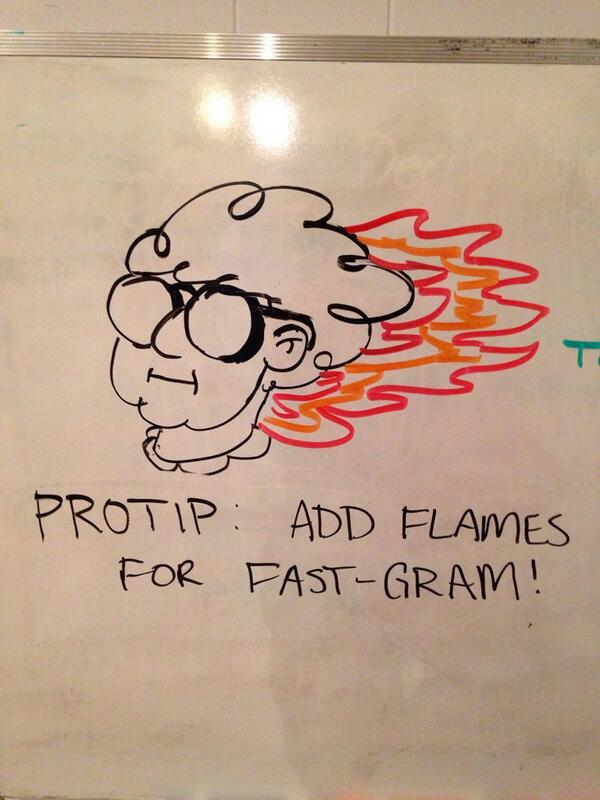 PROTIP: ADD FLAMES
FOR FAST-GRAM!